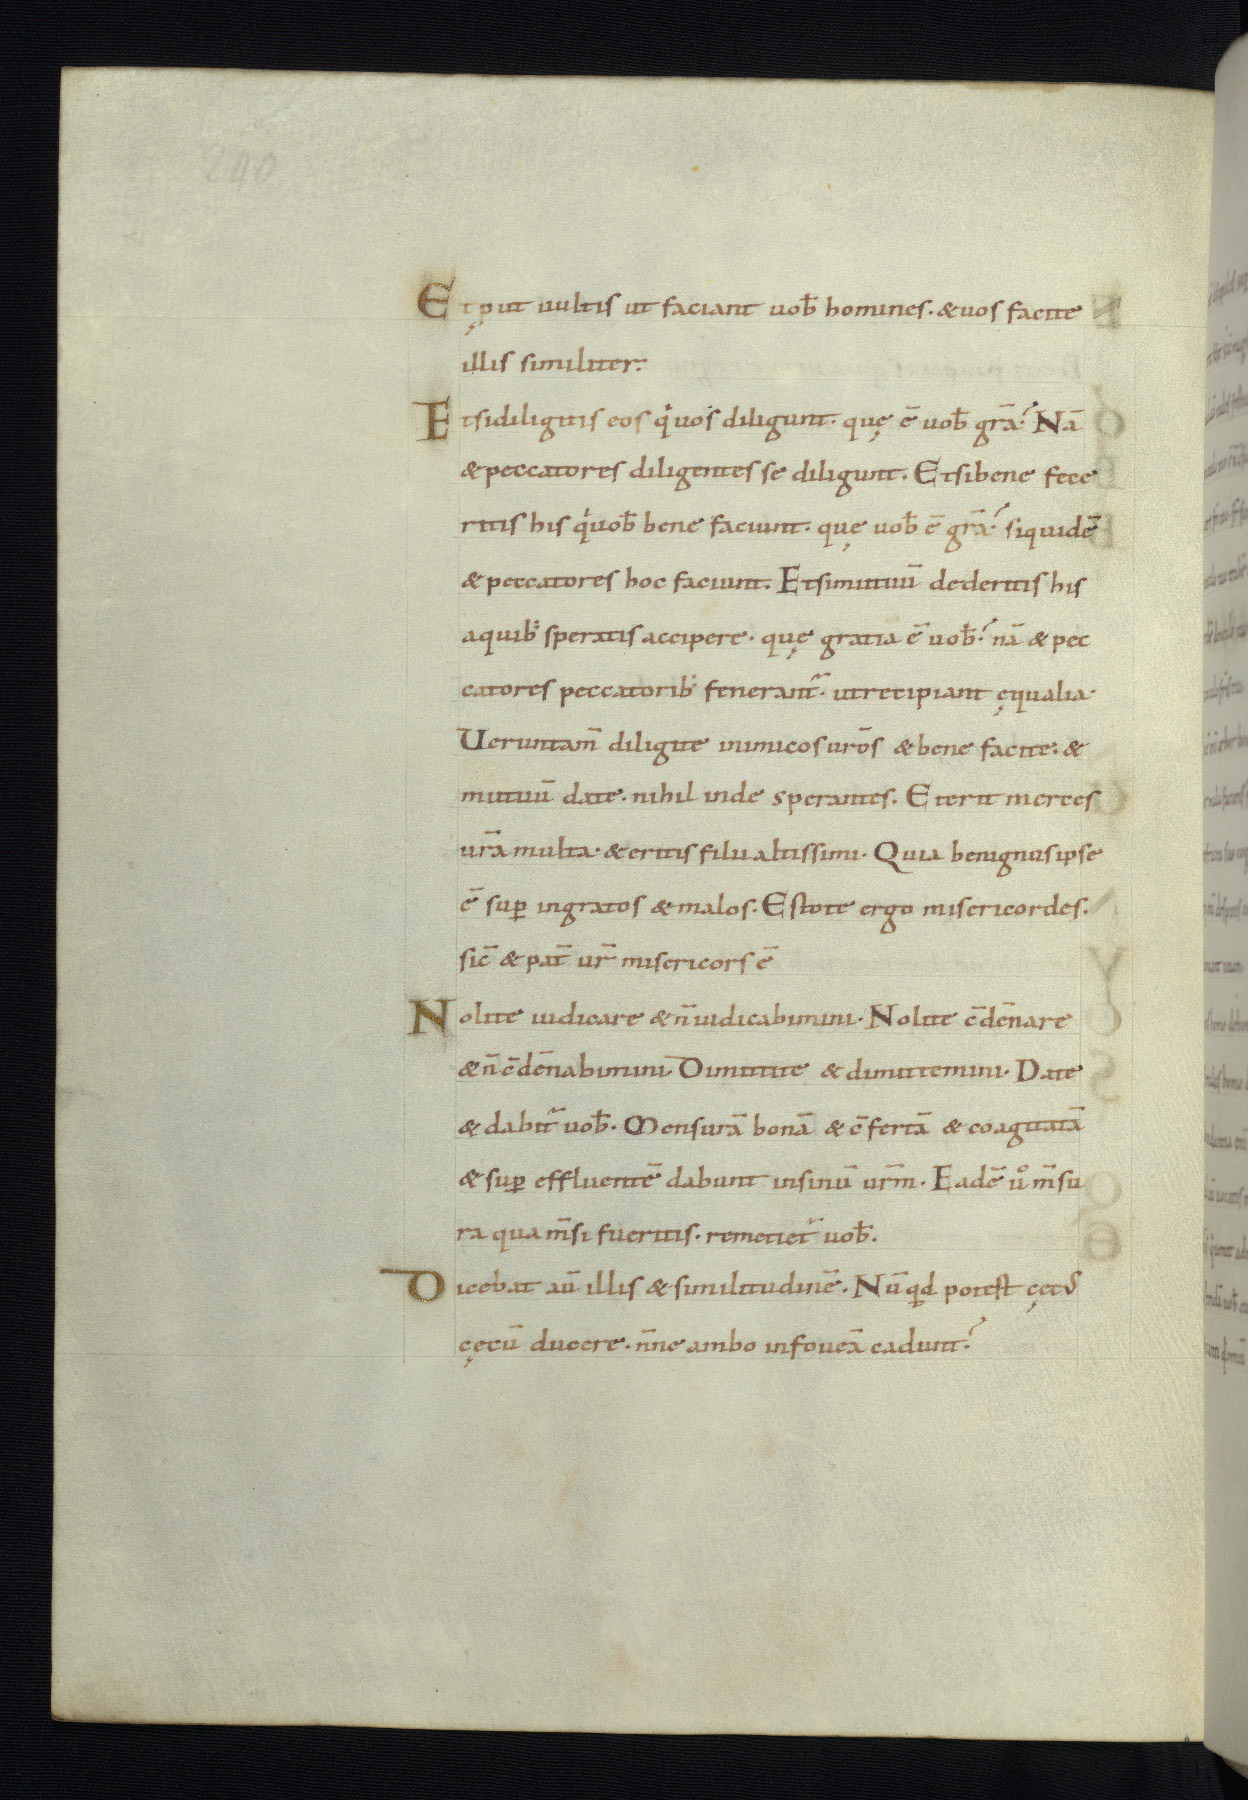 240
Et p̨ut uultis ut faciant uob̄ homines· & uos facite
illis similiter·
Et si diligitis eos qͥ uos diligunt· quę ē uob̄ grā? Nā
& peccatores diligentes se diligunt· Et si bene fece
ritis his qͥ uob̄ bene faciunt· quę uob̄ ē grā? siquidē
& peccatores hoc faciunt· Et si mutuū dederitis his
a quib; speratis accipere· quę gratia ē uob̄? nā & pec
catores peccatorib; fenerant᷑· ut recipiant ęqualia·
Ueruntam̄ diligite inimicos urōs & bene facite· &
mutuū date· nihil inde sperantes· Et erit merces
urā multa· & eritis filii altissimi· Quia benignus ipse
ē suꝑ ingratos & malos· Estote ergo misericordes·
sic̄ & pat̄ ur̄ misericors ē
Nolite iudicare & n̄ iudicabimini· Nolite c̄dēnare
& n̄ c̄dēnabimini· Dimittite & dimittemini· Date
& dabit᷑ uob̄· Mensurā bonā & c̄fertā & coagitatā
& suꝑ effluentē dabunt in sinū urm̄· Eadē ů m̄su
ra qua m̄si fueritis· remetiet᷑ uob̄·
Dicebat aū illis & similitudinē· Nūqd̄ potest cęcꝰ
cęcū ducere· n̄ne ambo in foueā cadunt?